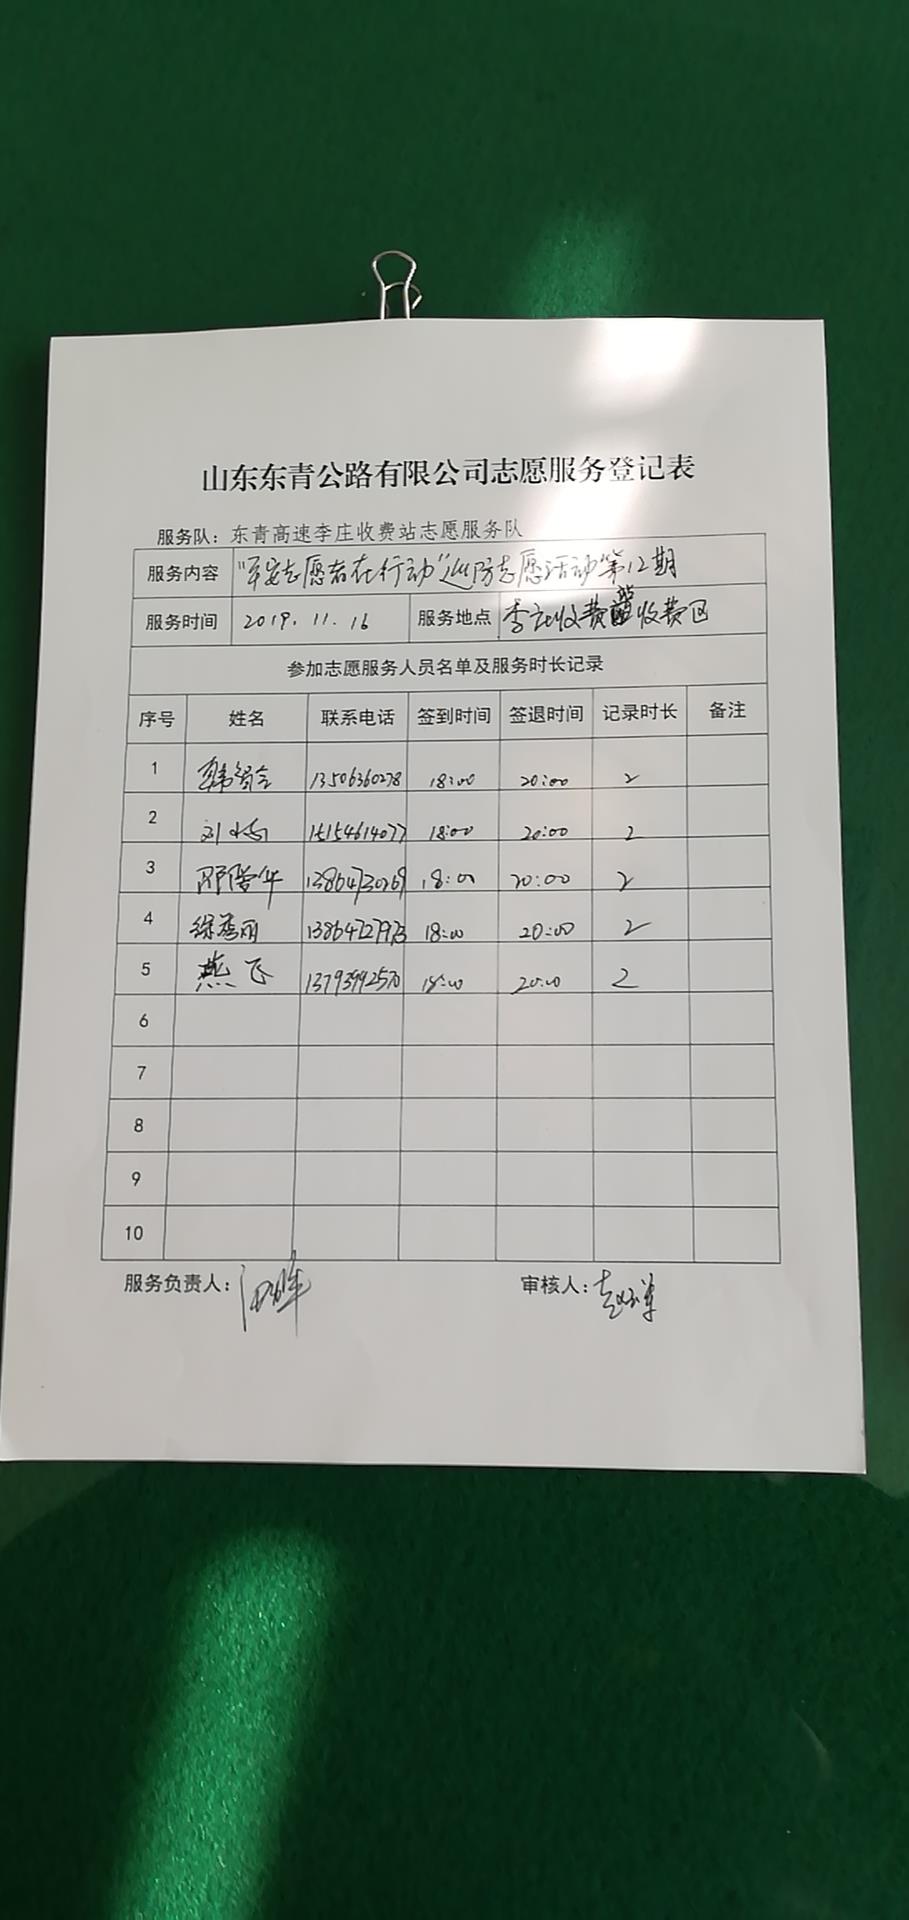 山东东青公路有限公司志愿服务登记表
服务队：东青高速李庄收费站志愿服务队
服务内容 "平安志愿者在行动"巡防志愿活动第12期
服务时间 2019.11.16 服务地点 李庄收费 收费区
参加志愿服务人员名单及服务时长记录
序号 姓名 联系电话 签到时间 签退时间 记录时长 备注
1 13506360278 18:00 20:00 2
2 刘 15154614077 18:00 20:00 2
3 华 18:00 20:00 2
4 徐秀丽 18:00 20:00 2
5 燕飞 18:00 20:00 2
6
7
8
9
10
服务负责人： 审核人：